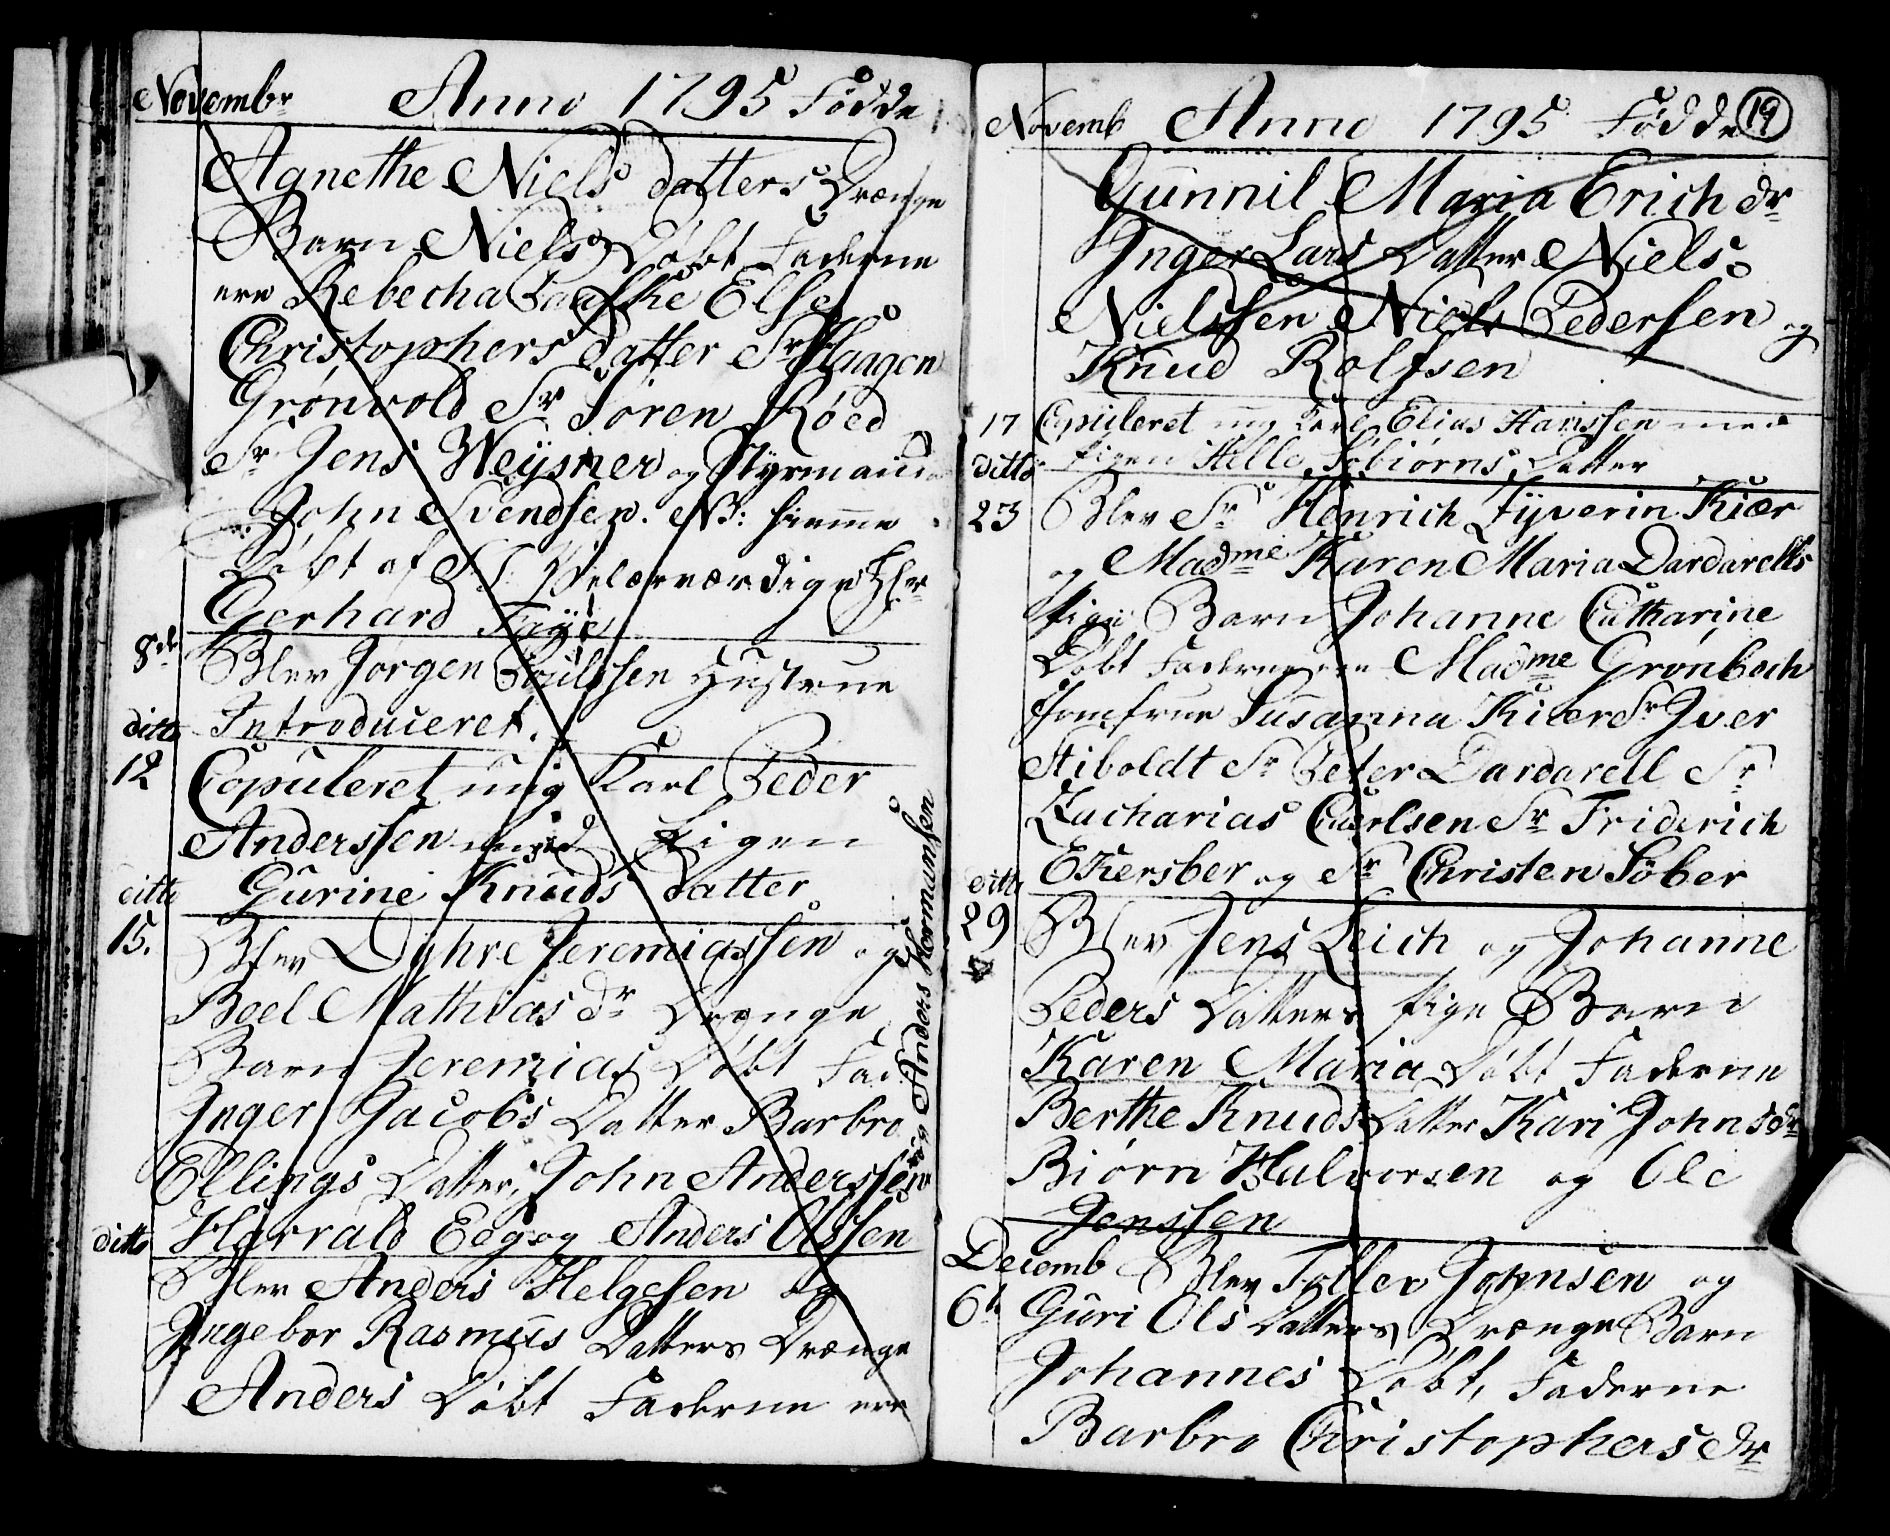 Novembr Anno 1795 Fødde
Agnethe Niels datters Drænge
Barn Niels Døbt Faderne
ere Rebecha Paaske Else
Christophers datter Sr Haagen
Grønvold Sr Søren Røed
Sr Jens Weysner og Styrmand
John Svendsen. NB: hiemme
Døbt af S T Velærværdige Hr
Gerhard Faye
8de Blev Jørgen Poulssen Hustrue
ditto Introduceret.
12 Copuleret ung Karl Peder
Anderssen med Pigen
ditto Gurine Knuds datter
15. Blev Dyhre Jeremiassen og
Boel Mathias dr Drænge
Barn Jeremias Døbt Fad
Inger Jacobs Datter Barbro
Ellings Datter, John Anderssen
ditto Harrald Eeg og Anders Olssen
Blev Anders Helgesen og
Ingebor Rasmus Datters Drænge
Anders Døbt Faderne ere
og Anders Hermansen
Novemb Anno 1795 Fødde 19
Gunnil Maria Erich dr
Inger Lars Datter Niels
Nielssen Niels Pedersen og
Knud Rolfsen
17 Copuleret ung Karl Elias Hanssen med
ditto Pigen Hille Tobiørns Datter
23 Blev Sr Henrich Tyverin Kiær
og Madme Karen Maria Dardarells
Pige Barn Johanne Catharine
Døbt Faderne ere Madme Grønbech
Jomfrue Susanna Kiær Sr Iver
Stiboldt Sr Peter Dardarell Sr
Zacharias Carlsen Sr Friderich
ditto Ekersber og Sr Christen Søber
29 Blev Jens Leich og Johanne
Peders Datters Pige Barn
Karen Maria Døbt Faderne
Berthe Knuds Datter Kari Johns dr
Biørn Halvorsen og Ole
Jenssen
Decemb Blev Toller Johnsen og
6t Guri Ols Datters Drænge Barn
Johannes Døbt, Faderne
Barbro Christophers dr